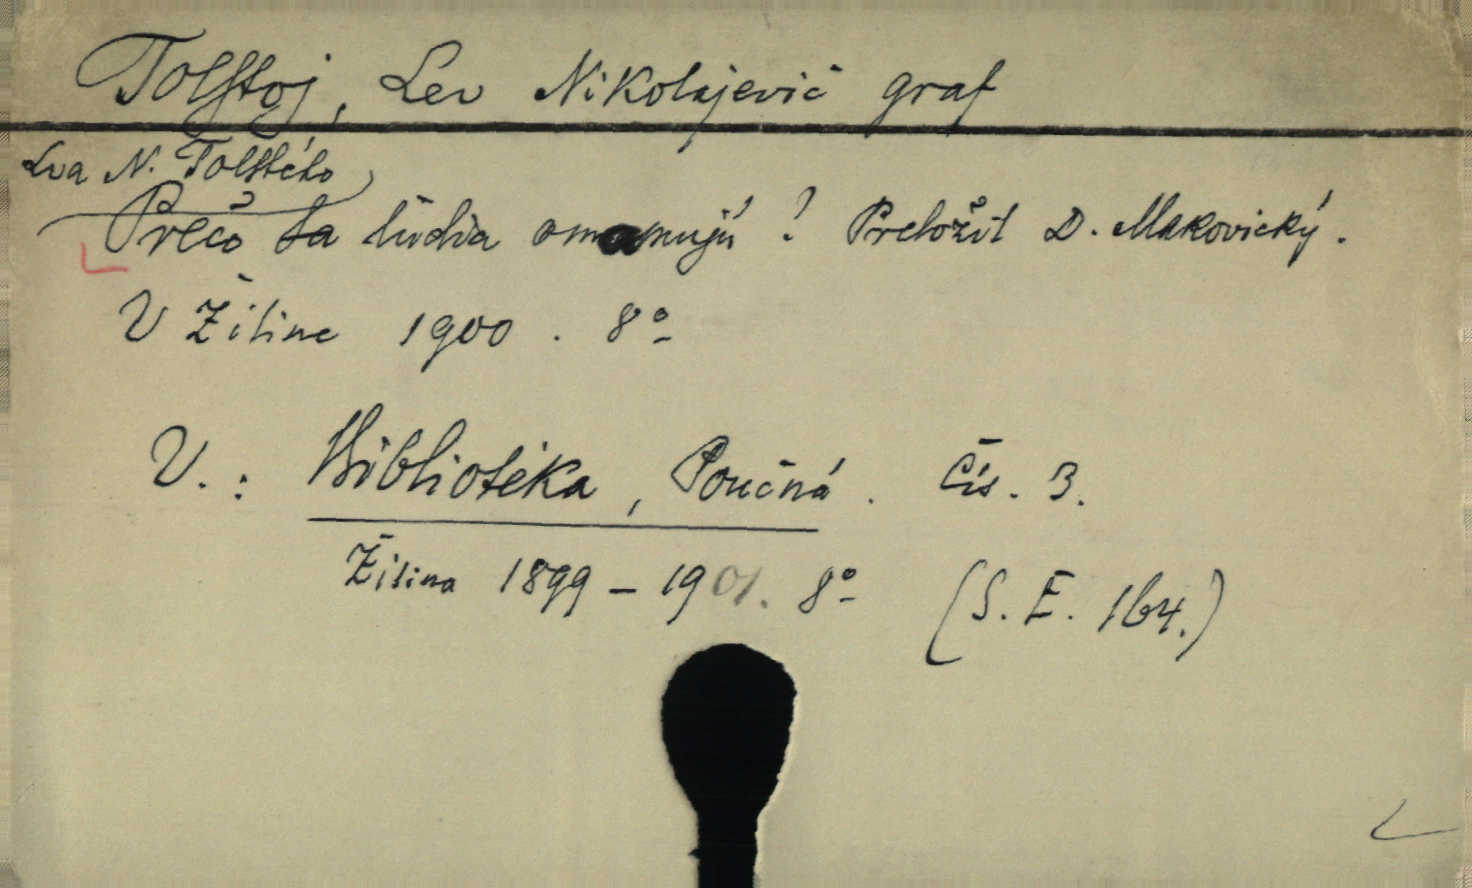 Tolstoj, Lev Nikolajevič graf
Lva N. Tolstého
Prečo sa ľudia omamujú? Preložil D. Makovický.
V Žiline 1900. 8º
V.: Bibliotéka, Poučná. Čís. 3.
Žilina 1899-1901. 8º (S. E. 164.)